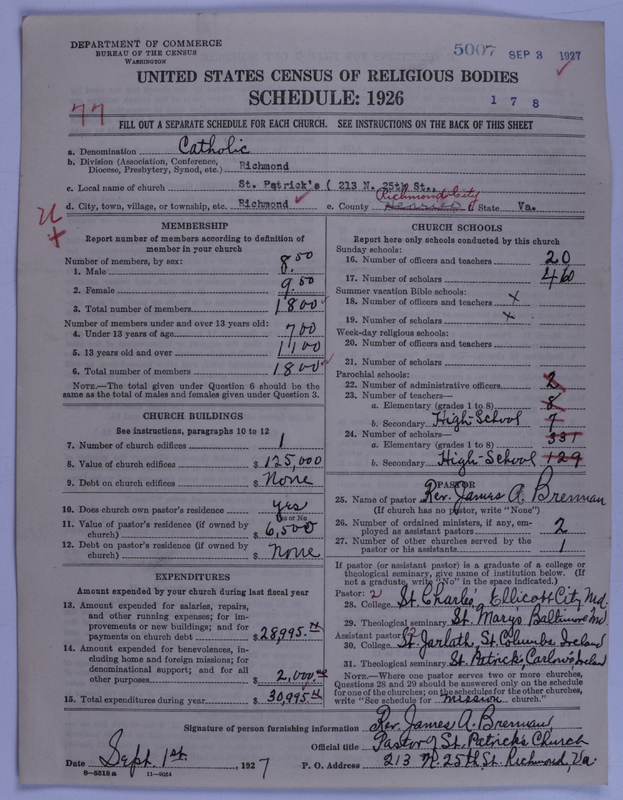 DEPARTMENT OF COMMERCE
BUREAU OF THE CENSUS
WASHINGTON
5007 SEP 3 1927
UNITED STATES CENSUS OF RELIGIOUS BODIES
SCHEDULE: 1926
1 7 8
77
FILL OUT A SEPARATE SCHEDULE FOR EACH CHURCH. SEE INSTRUCTIONS ON THE BACK OF THIS SHEET
a. Denomination Catholic
b. Division (Association, Conference, Diocese, Presbytery, Synod, etc.) Richmond
c. Local name of church St. Patrick's ( 213 N. 25th St.,
d. City, town, village, or township, etc. Richmond e. County Richmond City State Va.
MEMBERSHIP
Report number of members according to definition of
member in your church
Number of members, by sex:
1. Male 850
2. Female 950
3. Total number of members 1800
Number of members under and over 13 years old:
4. Under 13 years of age 700
5. 13 years old and over 1100
6. Total number of members 1800
NOTE.—The total given under Question 6 should be the
same as the total of males and females given under Question 3.
CHURCH BUILDINGS
See instructions, paragraphs 10 to 12
7. Number of church edifices 1
8. Value of church edifices $ 125,000
9. Debt on church edifices $ None
10. Does church own pastor's residence yes
Yes or No
11. Value of pastor's residence (if owned by
church) $ 6,500
12. Debt on pastor's residence (if owned by
church) $ None
EXPENDITURES
Amount expended by your church during last fiscal year
13. Amount expended for salaries, repairs,
and other running expenses; for im-
provements or new buildings; and for
payments on church debt $ 28,995.
14. Amount expended for benevolences, in-
cluding home and foreign missions; for
denominational support; and for all
other purposes $ 2,000.
15. Total expenditures during year $ 30,995.
CHURCH SCHOOLS
Report here only schools conducted by this church
Sunday schools:
16. Number of officers and teachers 20
17. Number of scholars 460
Summer vacation Bible schools:
18. Number of officers and teachers x
19. Number of scholars x
Week-day religious schools:
20. Number of officers and teachers
21. Number of scholars
Parochial schools:
22. Number of administrative officers 2
23. Number of teachers—
a. Elementary (grades 1 to 8) 8
b. Secondary High-School 7
24. Number of scholars—
a. Elementary (grades 1 to 8) 331
b. Secondary High-School 129
PASTOR
25. Name of pastor Rev. James A. Brennan
(If church has no pastor, write "None")
26. Number of ordained ministers, if any, em-
ployed as assistant pastors 2
27. Number of other churches served by the
pastor or his assistants 1
If pastor (or assistant pastor) is a graduate of a college or
theological seminary, give name of institution below. (If
not a graduate, write "No" in the space indicated.)
Pastor: 2
28. College St. Charles, Ellicott City, Md.
29. Theological seminary St. Marys Baltimore Md
Assistant pastor: 2
30. College St. Jarlath, St. Columbs, Ireland
31. Theological seminary St. Patricks, Carlows Ireland
NOTE.—Where one pastor serves two or more churches,
Questions 28 and 29 should be answered only on the schedule
for one of the churches; on the schedules for the other churches,
write "See schedule for mission church."
Signature of person furnishing information Rev. James A. Brennan
Official title Pastor of St. Patricks Church
Date Sept. 1st, 1927 P. O. Address 213 N. 25th, St. Richmond, Va.
8-5518a 11-9024